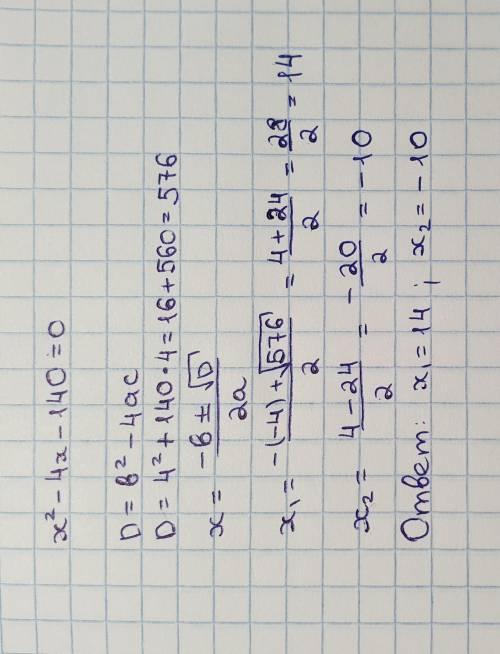 x² - 4x - 140 = 0
D = b² - 4ac
D = 4² + 140 · 4 = 16 + 560 = 576
x = (-b ± √D) / 2a
x₁ = (-(-4) + √576) / 2 = (4 + 24) / 2 = 28 / 2 = 14
x₂ = (4 - 24) / 2 = - 20 / 2 = -10
Ответ: x₁ = 14 ; x₂ = -10